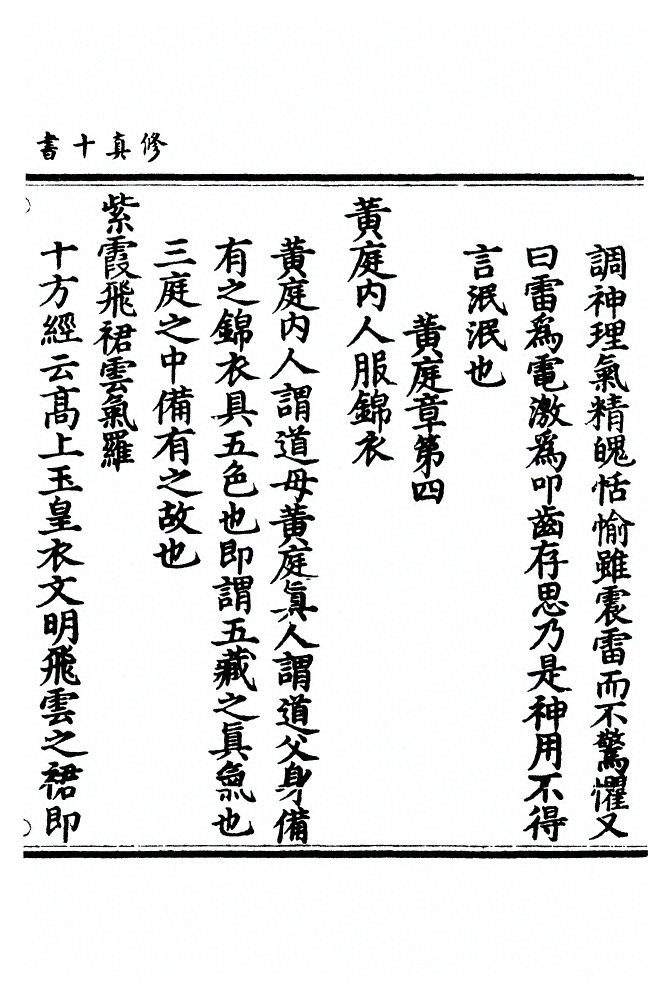 修真十書
調神理氣精魄恬愉雖震雷而不驚懼又
曰雷為電激為叩齒存思乃是神用不得
言泯泯也
黃庭章第四
黃庭內人服錦衣
黃庭內人謂道母黃庭真人謂道父身備
有之錦衣具五色也即謂五藏之真氣也
三庭之中備有之故也
紫霞飛裙雲氣羅
十方經云高上玉皇衣文明飛雲之裙即